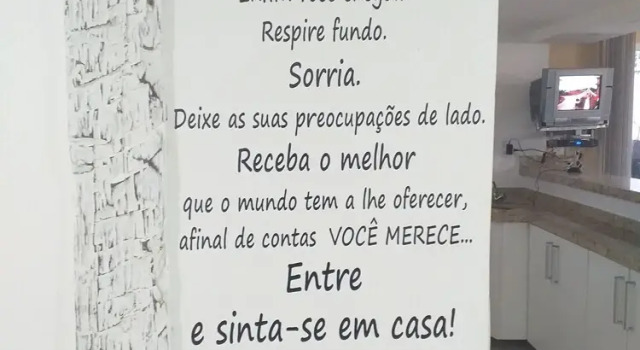 Respire fundo.
Sorria.
Deixe as suas preocupações de lado.
Receba o melhor
que o mundo tem a lhe oferecer,
afinal de contas VOCÊ MERECE...
Entre
e sinta-se em casa!